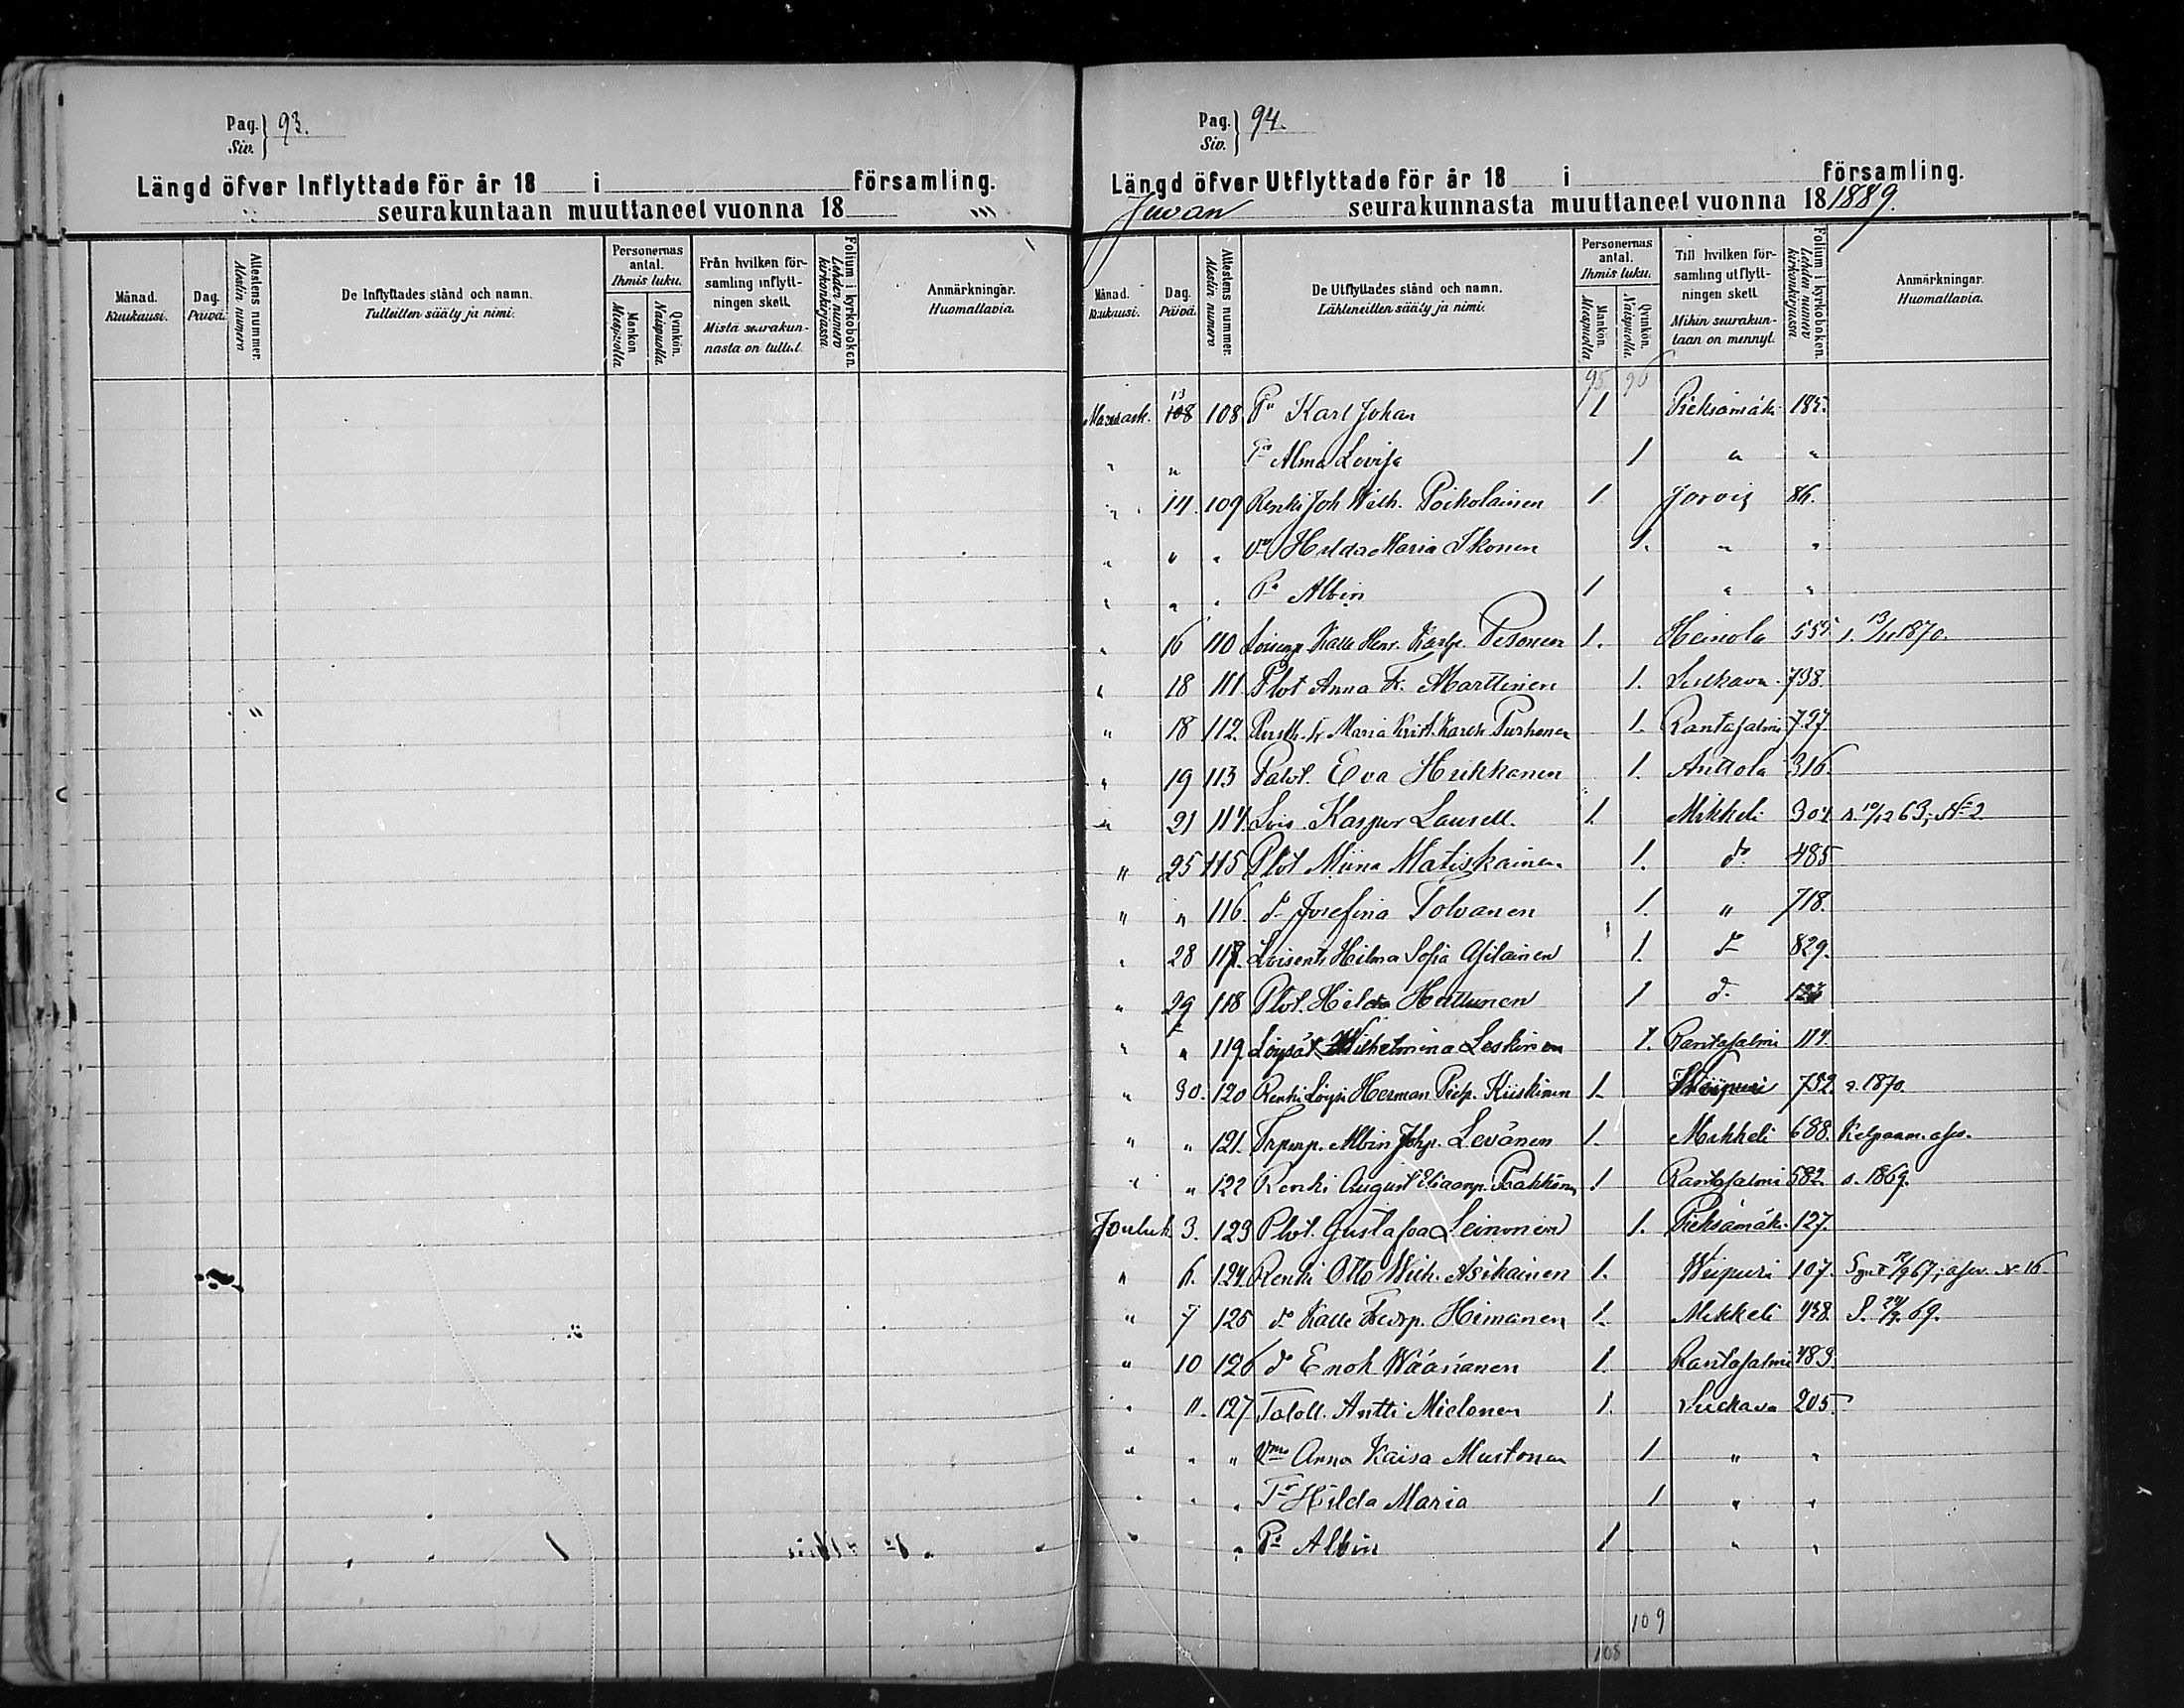 Pag. Siv. } 93.
Längd öfver Inflyttade för år 18 i församling.
seurakuntaan muuttaneet vuonna 18
Månad. Kuukausi.
Dag. Päivä.
Attestens nummer. Alestin numero
De Inflyttades stånd och namn. Tulleitten sääty ja nimi.
Personernas antal. Ihmis luku.
Mankön. Miespuolia
Qvinkön. Naispuolia.
Från hvilken församling inflyttningen skett. Mistä seurakunnasta on tullut.
Folium i kyrkoboken. Lehden numero kirkonkirjassa.
Anmärkningar. Huomattavia.
Pag. Siv. } 94.
Längd öfver Utflyttade för år 18 i församling.
Juvan seurakunnasta muuttaneet vuonna 18 1889.
Månad. Kuukausi.
Dag. Päivä.
Attestens nummer. Alestin numero
De Utflyttades stånd och namn. Lähteneitten sääty ja nimi.
Personernas antal. Ihmis luku.
Mankön. Miespuolia
Qvinkön. Naispuolia.
Till hvilken församling utflyttningen skett. Mihin seurakuntaan on mennyt.
Folium i kyrkoboken. Lehden numero kirkonkirjassa
Anmärkningar. Huomattavia.
95 96
Marrask. 13 108 108 Pa Karl Johan 1 Pieksämäki 185.
" " Tr Alma Lovisa 1 " "
" 14. 109 Renki Joh Wilh. Poikolainen 1. Jorois 86.
" " " Vo Hilda Maria Ikonen 1. " "
" " " Pa Albin 1 " "
" 16 110 Kalle Henr. Pesonen 1. Heinola 555 s. 13/11 1870.
" 18 111 Plot Anna Fr. Marttinen 1. Sulkava 738.
" 18 112. Maria Krist. Purhonen 1. Rantasalmi 727.
" 19 113 Talot. Eva Hukkanen 1. Anttola 316.
" 21 114. Lois. Kasper Laurell. 1. Mikkeli 304 s. 10/12 63; No 2
" 25 115 Plot Miina Matiskainen 1. do. 485
" " 116. do Josefina Tolvanen 1. " 718.
" 28 117. Loisentr Hilma Sofia Asilainen 1. do 829.
" 29 118 Plot. Hilda Huttunen 1 do.
" " 119. Löysät Wilhelmina Leskinen 1. Rantasalmi 114.
" 30. 120 Renki Löysä Herman Kiiskinen 1. Wiipuri 752 s. 1870.
" " 121. Albin Johp. Levänen 1. Mikkeli 688.
" " 122 Renki August Pakkanen 1 Rantasalmi 582. s. 1869.
Jouluk 3. 123 Plot. Gustafva Leinonen 1. Pieksämäki 127.
" 6. 124. Renki Otto Wilh. Asikainen 1. Wiipuri 107. No 16.
" 7 125 do Kalle Himanen 1. Mikkeli 438. S. 24/9. 69.
" 10 126 do Enok Wäänänen 1. Rantasalmi 483.
" 11. 127 Taloll. Antti Mielonen 1. Sulkava 205.
" " " Vmo Anna Kaisa Mustonen 1 " "
" " " Tr Hilda Maria 1 " "
" " Pa Albin 1 " "
109
108